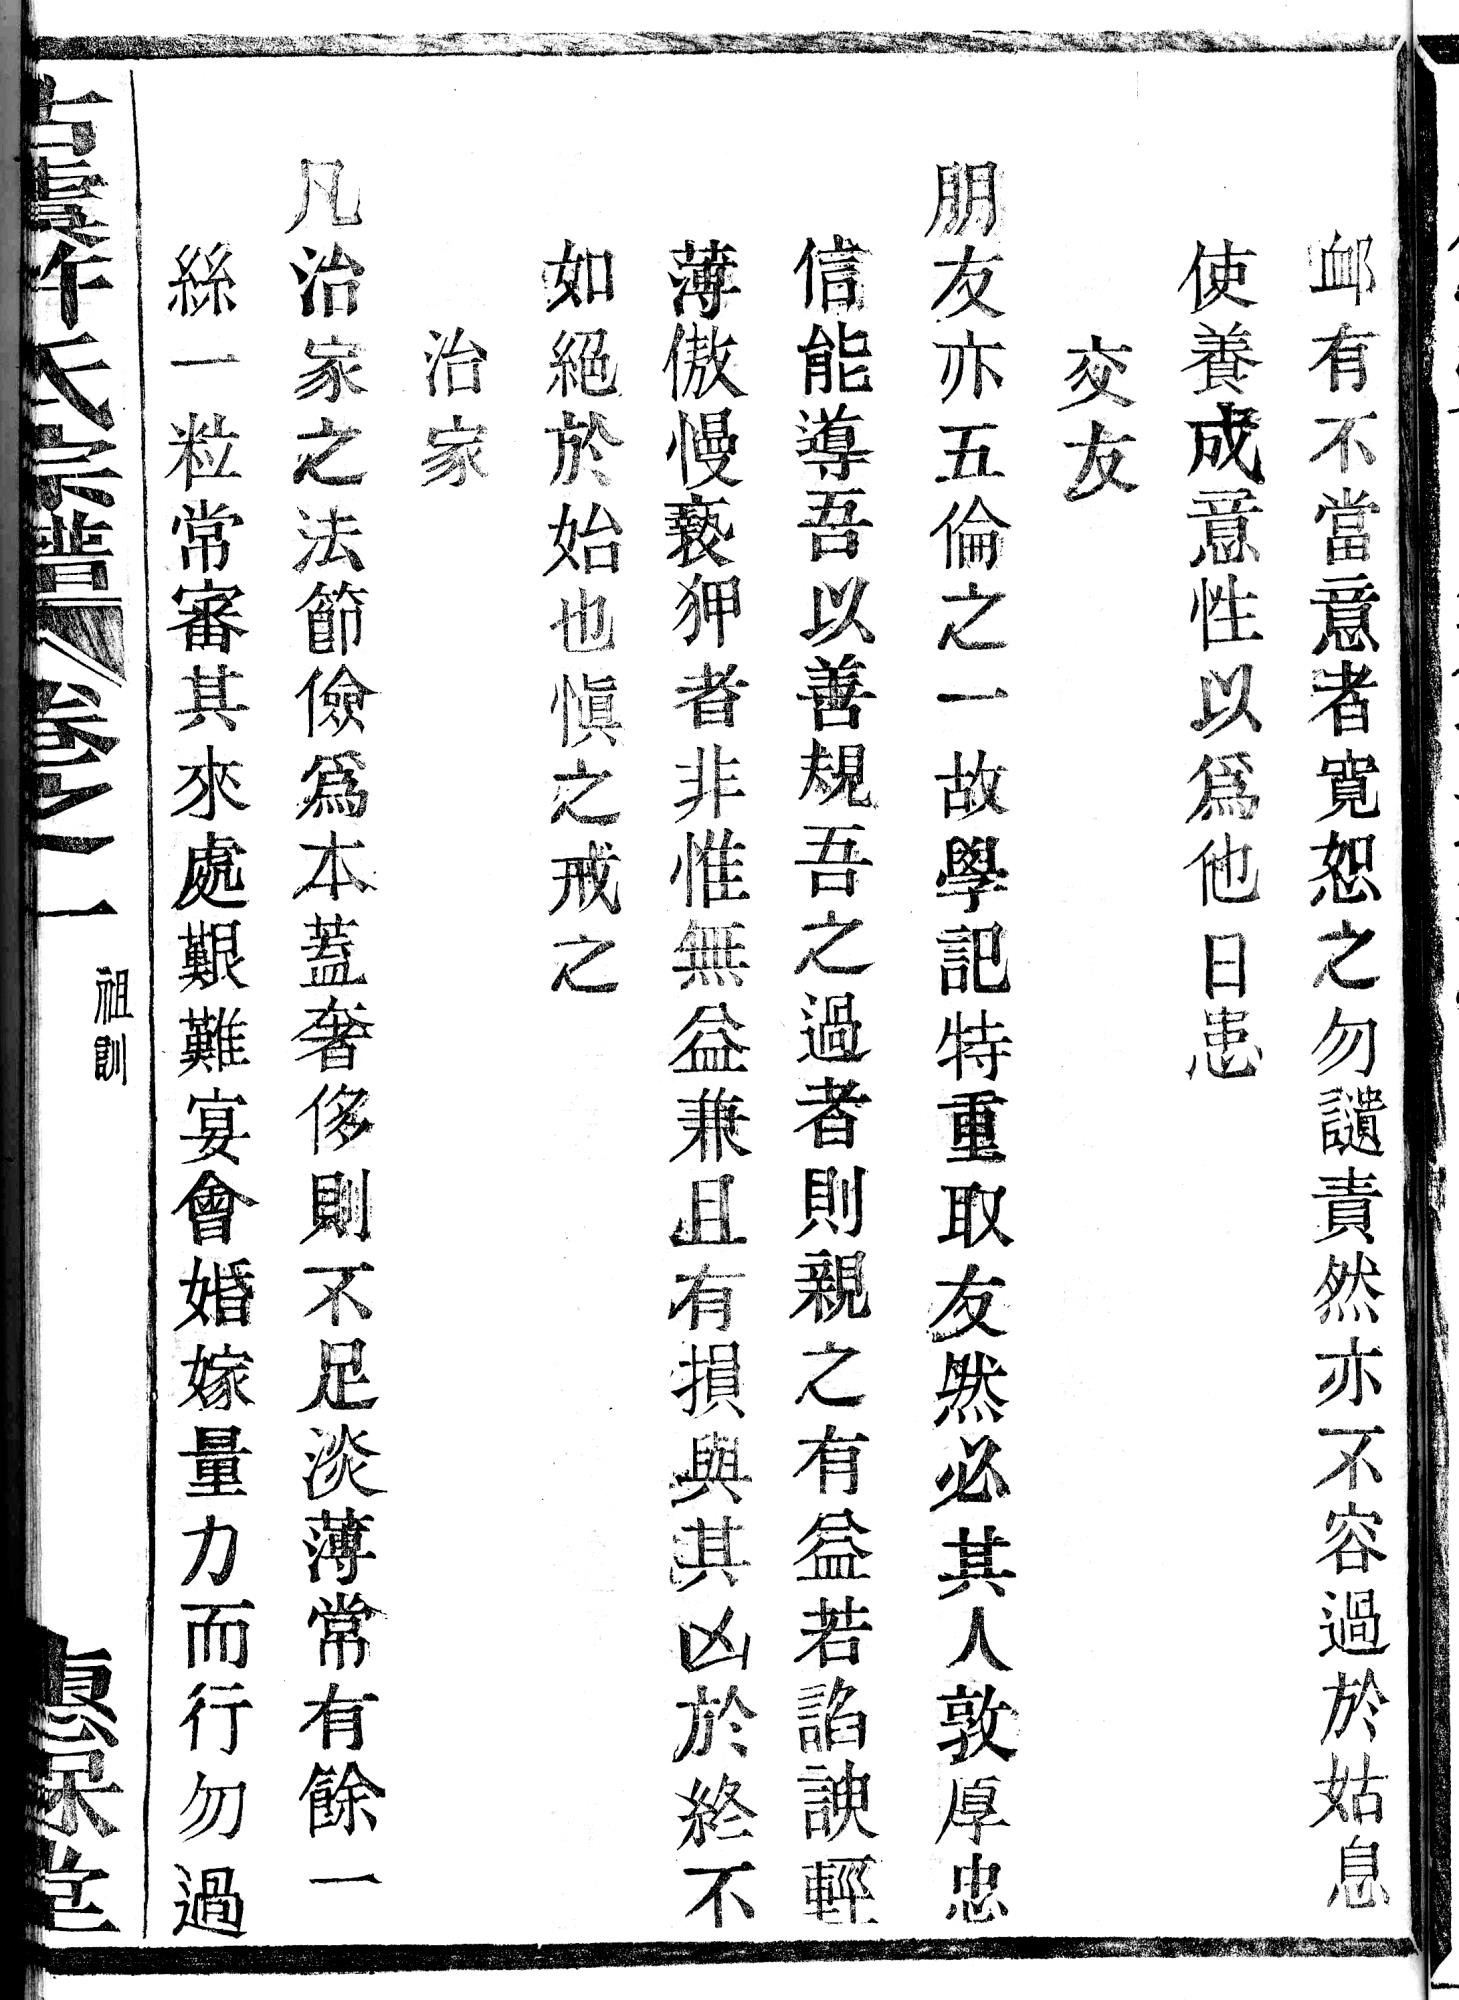 卹有不當意者寬恕之勿譴責然亦不容過於姑息
使養成意性以爲他日患
交友
朋友亦五倫之一故學記特重取友然必其人敦厚忠
信能導吾以善規吾之過者則親之有益若諂諛輕
薄傲慢褻狎者非惟無益兼且有損與其凶於終不
如絕於始也愼之戒之
治家
凡治家之法節儉爲本蓋奢侈則不足淡薄常有餘一
絲一粒常審其來處艱難宴會婚嫁量力而行勿過
古虞許氏宗譜 卷之一
祖訓
堂